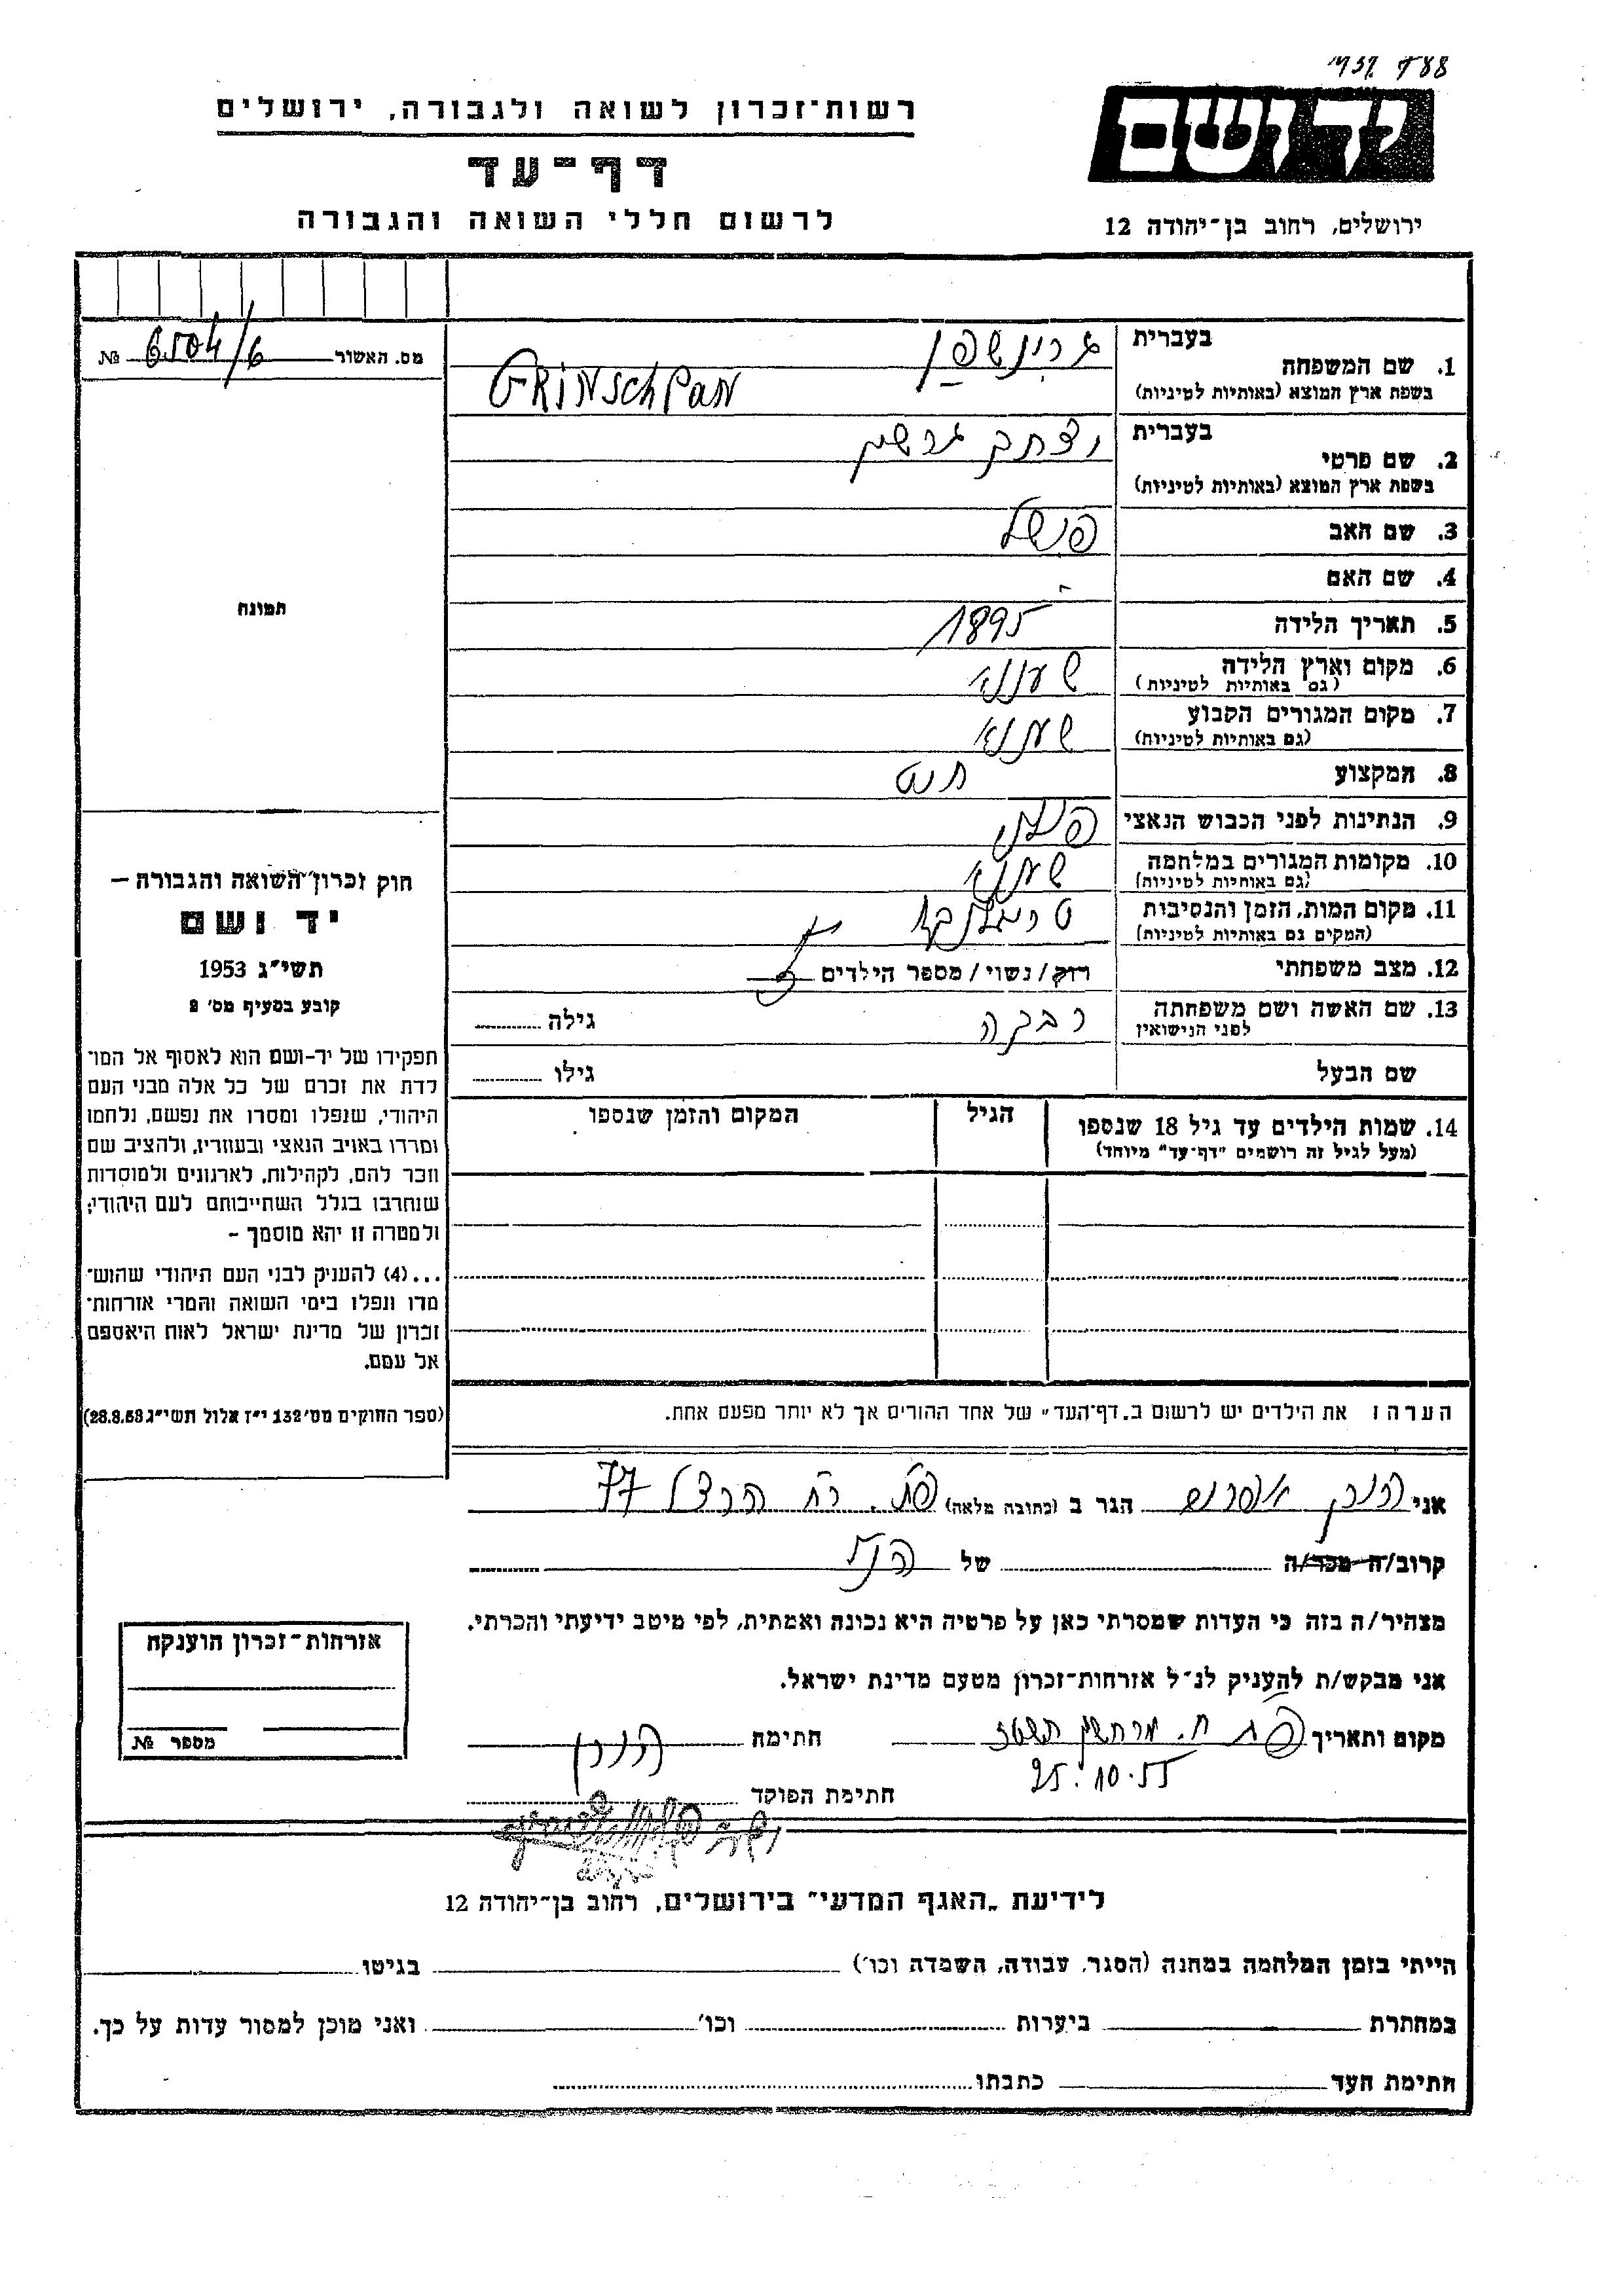 יד ושם
ירושלים, רחוב בן-יהודה 12
רשות-זכרון לשואה ולגבורה, ירושלים
דף-עד
לרשום חללי השואה והגבורה
מס. האשור 6504/6 №
1. שם המשפחה
בעברית גרינשפן
בשפת ארץ המוצא (באותיות לטיניות) GRINSCHPAN
2. שם פרטי
בעברית יצחק גרשון
בשפת ארץ המוצא (באותיות לטיניות)
3. שם האב פישל
4. שם האם -
5. תאריך הלידה 1895
6. מקום וארץ הלידה
(גם באותיות לטיניות)
7. מקום המגורים הקבוע
(גם באותיות לטיניות)
8. המקצוע
9. הנתינות לפני הכבוש הנאצי
10. מקומות המגורים במלחמה
(גם באותיות לטיניות)
11. מקום המות, הזמן והנסיבות טרבלינקה
(המקום גם באותיות לטיניות)
12. מצב משפחתי רווק/נשוי/מספר הילדים
13. שם האשה ושם משפחתה רבקה גילה
לפני הנישואין
שם הבעל גילו
14. שמות הילדים עד גיל 18 שנספו הגיל המקום והזמן שנספו
(מעל לגיל זה רושמים "דף-עד" מיוחד)
הערה: את הילדים יש לרשום ב"דף-העד" של אחד ההורים אך לא יותר מפעם אחת.
תמונה
חוק זכרון השואה והגבורה —
יד ושם
תשי"ג 1953
קובע בסעיף מס' 2
תפקידו של יד-ושם הוא לאסוף אל המו-
לדת את זכרם של כל אלה מבני העם
היהודי, שנפלו ומסרו את נפשם, נלחמו
ומרדו באויב הנאצי ובעוזריו, ולהציב שם
וזכר להם, לקהילות, לארגונים ולמוסדות
שנחרבו בגלל השתייכותם לעם היהודי;
ולמטרה זו יהא מוסמך -
...(4) להעניק לבני העם היהודי שהוש-
מדו ונפלו בימי השואה והמרי אזרחות-
זכרון של מדינת ישראל לאות היאספם
אל עמם.
(ספר החוקים מס' 132 י"ז אלול תשי"ג 28.8.53)
אני הגר ב (כתובה מלאה) פת. רח הרצל 77
קרוב/ה מכר/ה של הנ"ל
מצהיר/ה בזה כי העדות שמסרתי כאן על פרטיה היא נכונה ואמתית, לפי מיטב ידיעתי והכרתי.
אני מבקש/ת להעניק לנ"ל אזרחות-זכרון מטעם מדינת ישראל.
מקום ותאריך פת ח. מרחשון תשטז חתימה
25.10.55
חתימת הפוקד
אזרחות-זכרון הוענקה
מספר №
לידיעת "האגף המדעי" בירושלים, רחוב בן-יהודה 12
הייתי בזמן המלחמה במחנה (הסגר, עבודה, השמדה וכו') בגיטו
במחתרת ביערות וכו' ואני מוכן למסור עדות על כך.
חתימת העד כתבתו